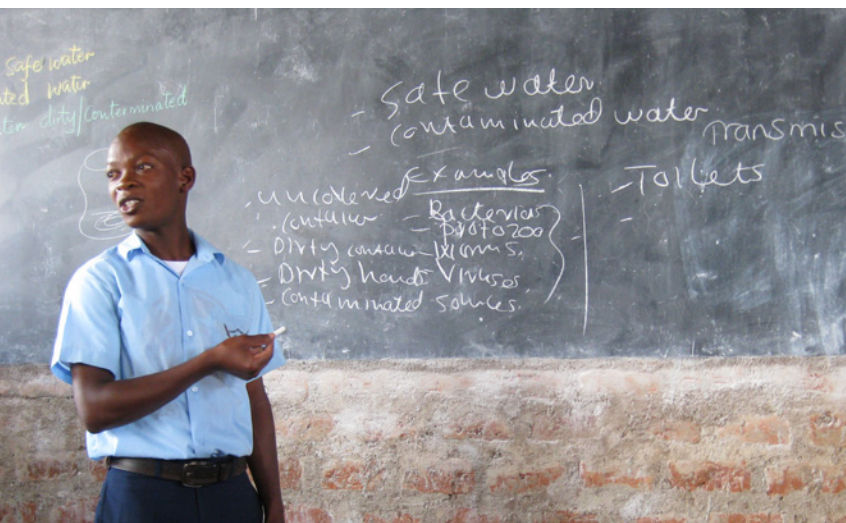 safe water
water
dirty/Conterminated
- Safe water
- contaminated water
Transmis
Examples
- uncovered
container
- Dirty container
- Dirty hands
- contaminated sources.
- Bacterias
- protozoa
- worms.
- Viruses.
- Toilets
-